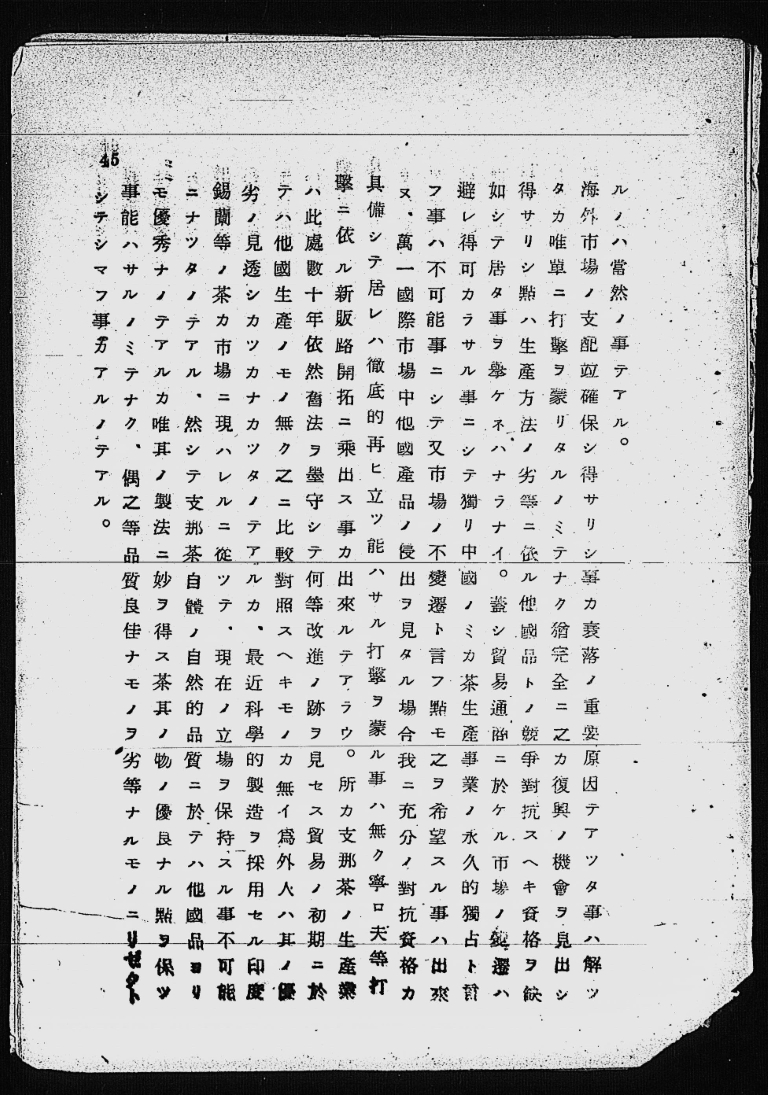 ルノハ當然ノ事テアル。
海外市場ノ支配竝確保シ得サリシ事カ衰落ノ重要原因テアツタ事ハ解ツ
タカ唯單ニ打擊ヲ蒙リタルノミテナク猶完全ニ之カ復興ノ機會ヲ見出シ
得サリシ點ハ生產方法ノ劣等ニ依ル他國品トノ競爭對抗スヘキ資格ヲ缺
如シテ居タ事ヲ擧ケネハナラナイ。蓋シ貿易通商ニ於ケル市場ノ變遷ハ
避レ得可カラサル事ニシテ獨リ中國ノミカ茶生產事業ノ永久的獨占ト言
フ事ハ不可能事ニシテ又市場ノ不變遷ト言フ點モ之ヲ希望スル事ハ出來
ヌ、萬一國際市場中他國產品ノ侵出ヲ見タル場合我ニ充分ノ對抗資格カ
具備シテ居レハ徹底的再ヒ立ツ能ハサル打擊ヲ蒙ル事ハ無ク寧ロ夫等打
擊ニ依ル新販路開拓ニ乘出ス事カ出來ルテアラウ。所カ支那茶ノ生產業
ハ此處數十年依然舊法ヲ墨守シテ何等改進ノ跡ヲ見セス貿易ノ初期ニ於
テハ他國生產ノモノ無ク之ニ比較對照スヘキモノカ無イ爲外人ハ其ノ優
劣ノ見透シカツカナカツタノテアルカ、最近科學的製造ヲ採用セル印度
錫蘭等ノ茶カ市場ニ現ハレルニ從ツテ、現在ノ立場ヲ保持スル事不可能
ニナツタノテアル、然シテ支那茶自體ノ自然的品質ニ於テハ他國品ヨリ
モ優秀ナノテアルカ唯其ノ製法ニ妙ヲ得ス茶其ノ物ノ優良ナル點ヲ保ツ
事能ハサルノミテナク、偶之等品質良佳ナモノヲ劣等ナルモノニ
シテシマフ事カアルノテアル。
45